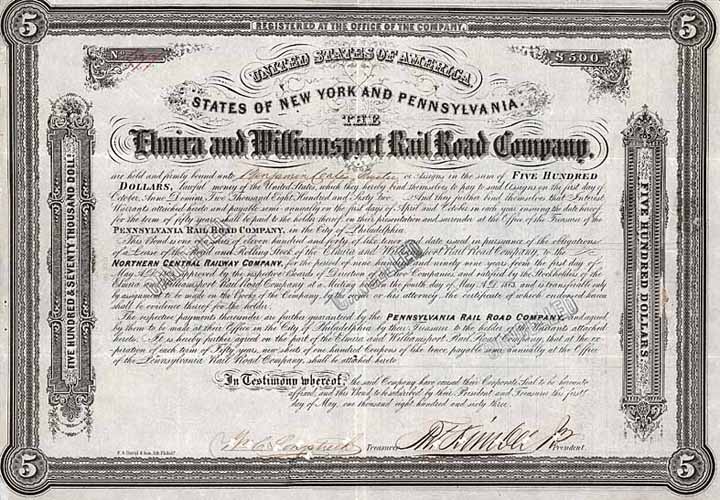 5 REGISTERED AT THE OFFICE OF THE COMPANY. 5
No. $500
UNITED STATES OF AMERICA
STATES OF NEW YORK AND PENNSYLVANIA.
THE
Elmira and Williamsport Rail Road Company,
are held and firmly bound unto Benjamin or Assigns in the sum of FIVE HUNDRED
DOLLARS, lawful money of the United States, which they hereby bind themselves to pay to said Assigns on the first day of
October, Anno Domini, Two Thousand Eight Hundred and Sixty Two. And they further bind themselves that Interest
Warrants attached hereto and payable semi-annually on the first days of April and October in each year ensuing the date hereof
for the term of fifty years shall be paid to the holder thereof on their presentation and surrender at the Office of the Treasurer of the
PENNSYLVANIA RAIL ROAD COMPANY, in the City of Philadelphia.
This Bond is one of a series of eleven hundred and forty of like tenor and date issued in pursuance of the obligations
of a Lease of the Road and Rolling Stock of the Elmira and Williamsport Rail Road Company, to the
NORTHERN CENTRAL RAILWAY COMPANY, for the period of nine hundred and ninety nine years from the first day of
May, A.D. 1863, approved by the respective Boards of Directors of said Companies, and ratified by the Stockholders of the
Elmira and Williamsport Rail Road Company at a Meeting held on the fourth day of May A.D. 1863, and is transferable
only by assignment to be made on the Books of the Company, by the holder or his attorney, the certificate of which endorsed hereon
shall be evidence thereof for the holder.
The respective payments thereunder are further guaranteed by the PENNSYLVANIA RAIL ROAD COMPANY, and agreed
by them to be made at their Office in the City of Philadelphia by their Treasurer to the holder of the Warrants attached
hereto. It is hereby further agreed on the part of the Elmira and Williamsport Rail Road Company, that at the ex-
piration of each term of Fifty years, new sheets of one hundred Coupons of like tenor, payable semi-annually at the Office
of the Pennsylvania Rail Road Company, shall be attached hereto.
In Testimony whereof, the said Company have caused their Corporate Seal to be hereunto
affixed, and this Bond to be subscribed by their President and Treasurer the first
day of May, one thousand eight hundred and sixty three.
Treasurer President.
5 5
FIVE HUNDRED & SEVENTY THOUSAND DOLLS.
FIVE HUNDRED DOLLARS
CANCELLED
CANCELLED
CANCELLED